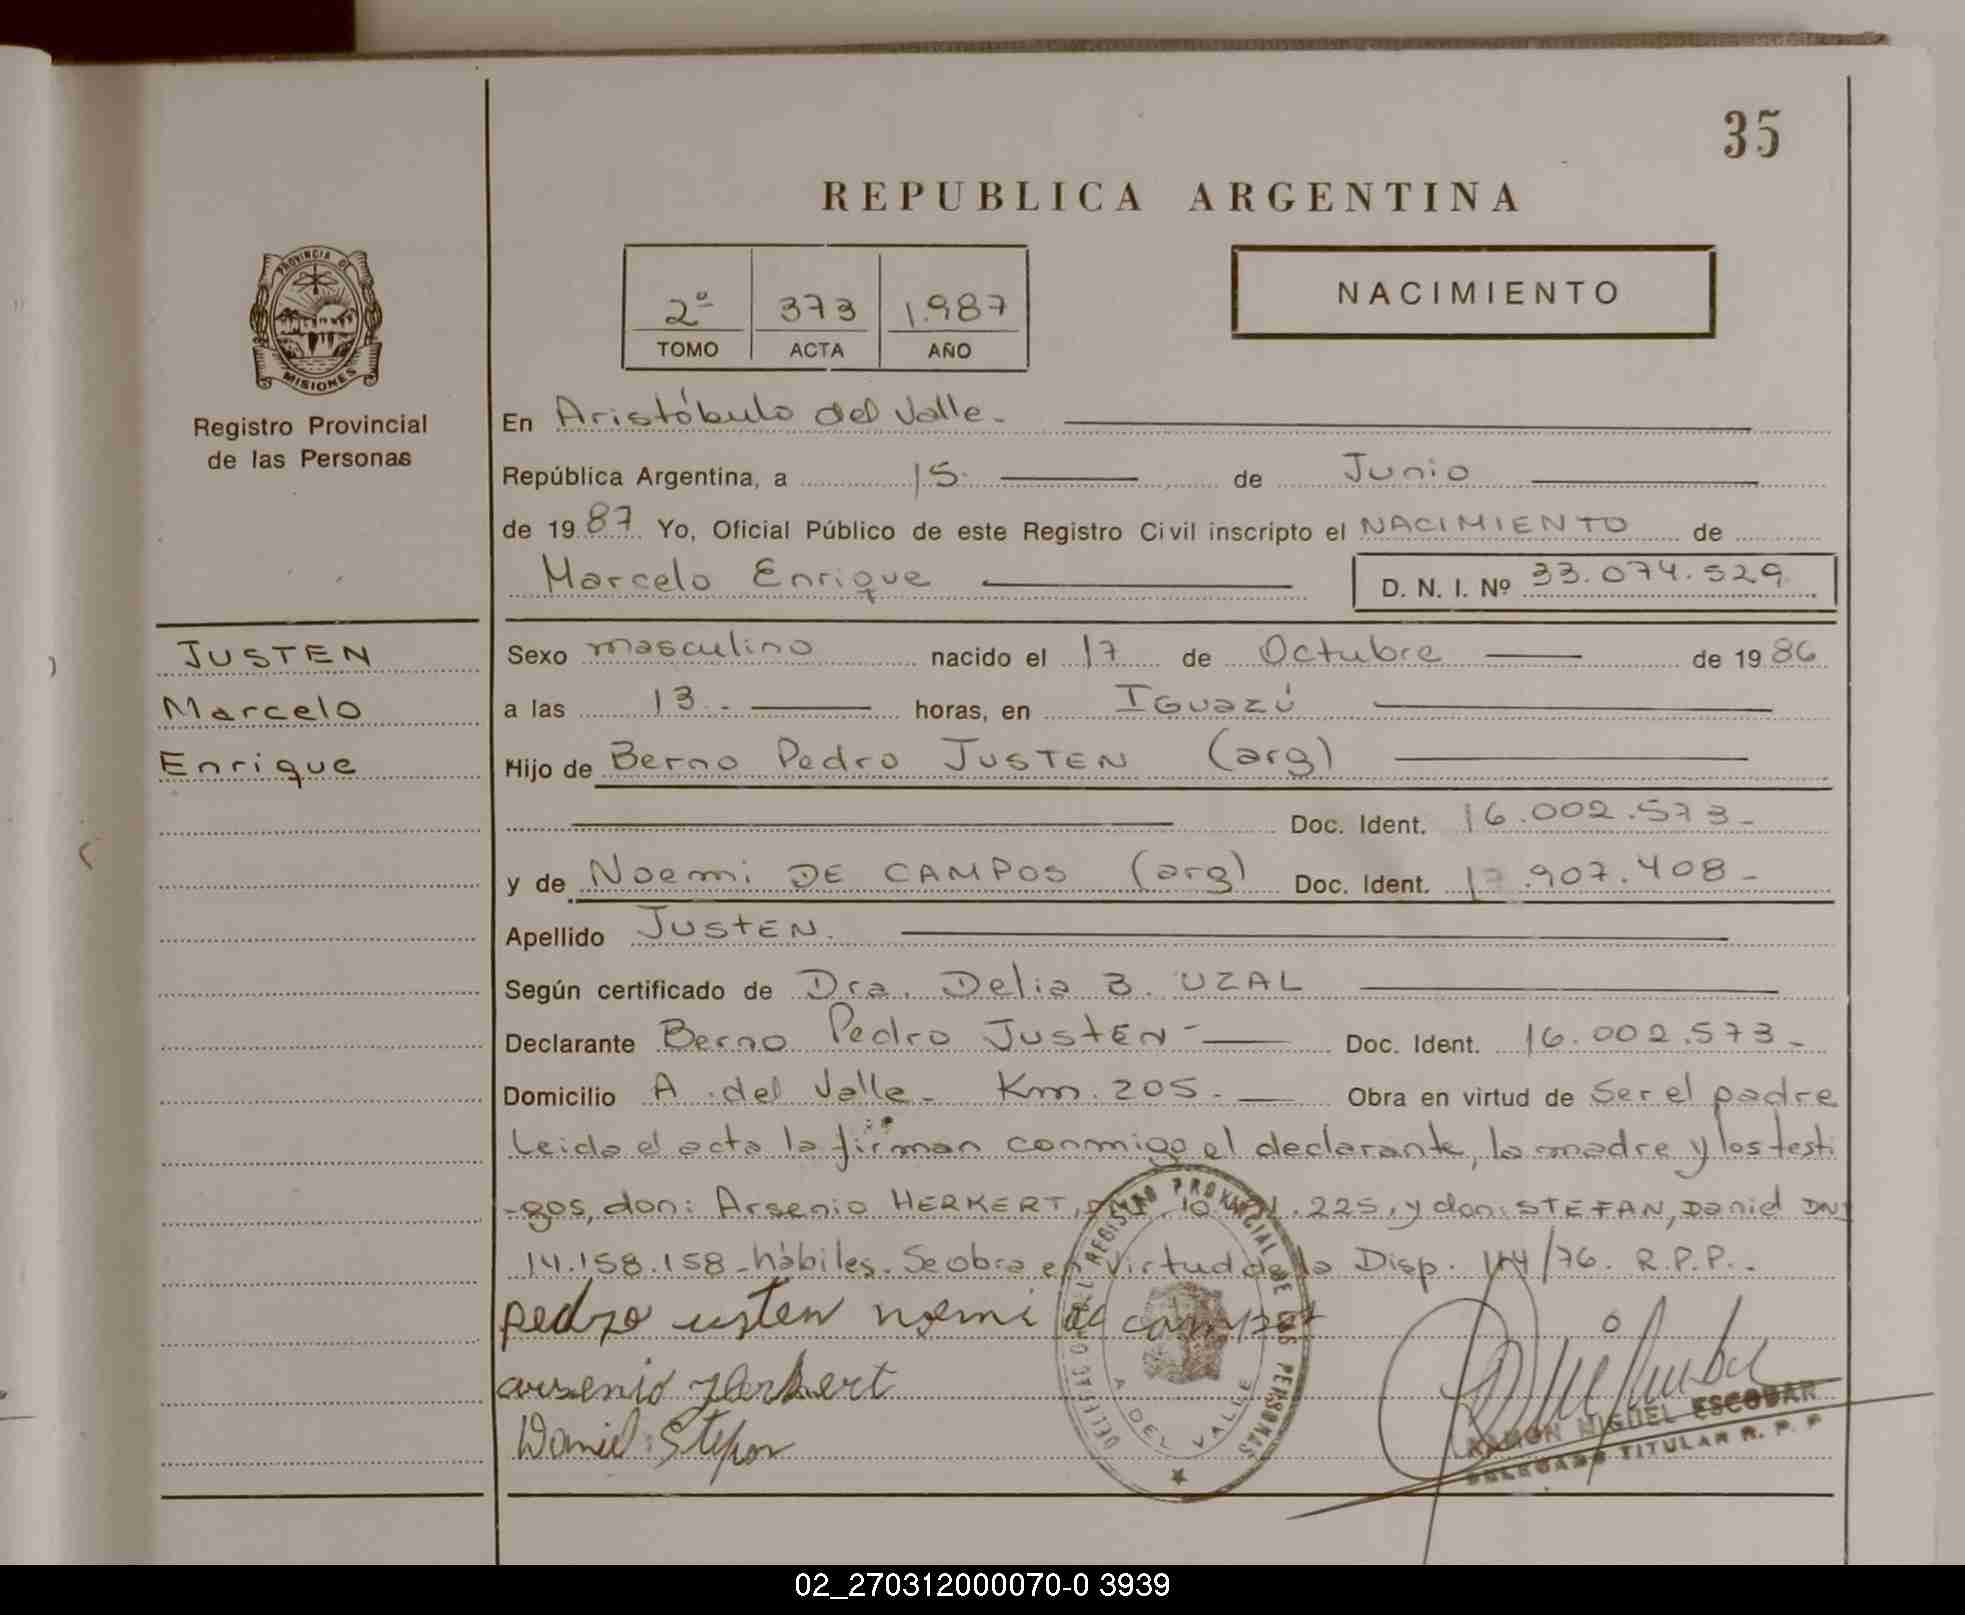 35
REPUBLICA ARGENTINA
NACIMIENTO
2º 373 1.987
TOMO ACTA AÑO
PROVINCIA DE
MISIONES
Registro Provincial
de las Personas
JUSTEN
Marcelo
Enrique
En Aristóbulo del Valle.
República Argentina, a 15. de Junio
de 1987 Yo, Oficial Público de este Registro Civil inscripto el NACIMIENTO de
Marcelo Enrique D. N. I. Nº 33.074.529
Sexo masculino nacido el 17 de Octubre de 1986
a las 13.- horas, en Iguazú
Hijo de Berno Pedro JUSTEN (arg)
Doc. Ident. 16.002.573-
y de Noemi DE CAMPOS (arg) Doc. Ident. 17.907.408-
Apellido JUSTEN.
Según certificado de Dra. Delia B. UZAL
Declarante Berno Pedro JUSTEN- Doc. Ident. 16.002.573-
Domicilio A. del Valle- Km. 205.- Obra en virtud de Ser el padre
Leida el acta la firman conmigo el declarante, la madre y los testi
-gos, don: Arsenio HERKERT, .225, y don: STEFAN, Daniel DNI
14.158.158-hábiles. Se obra en virtud de la Disp. /76. R.P.P.-
pedro usten noemi de campos
arsenio Herkert
Daniel Stefan
DEL REGISTRO PROVINCIAL DE LAS PERSONAS
A. DEL VALLE
RAMON MIGUEL ESCOBAR
DELEGADO TITULAR R. P. P.
02_270312000070-0 3939